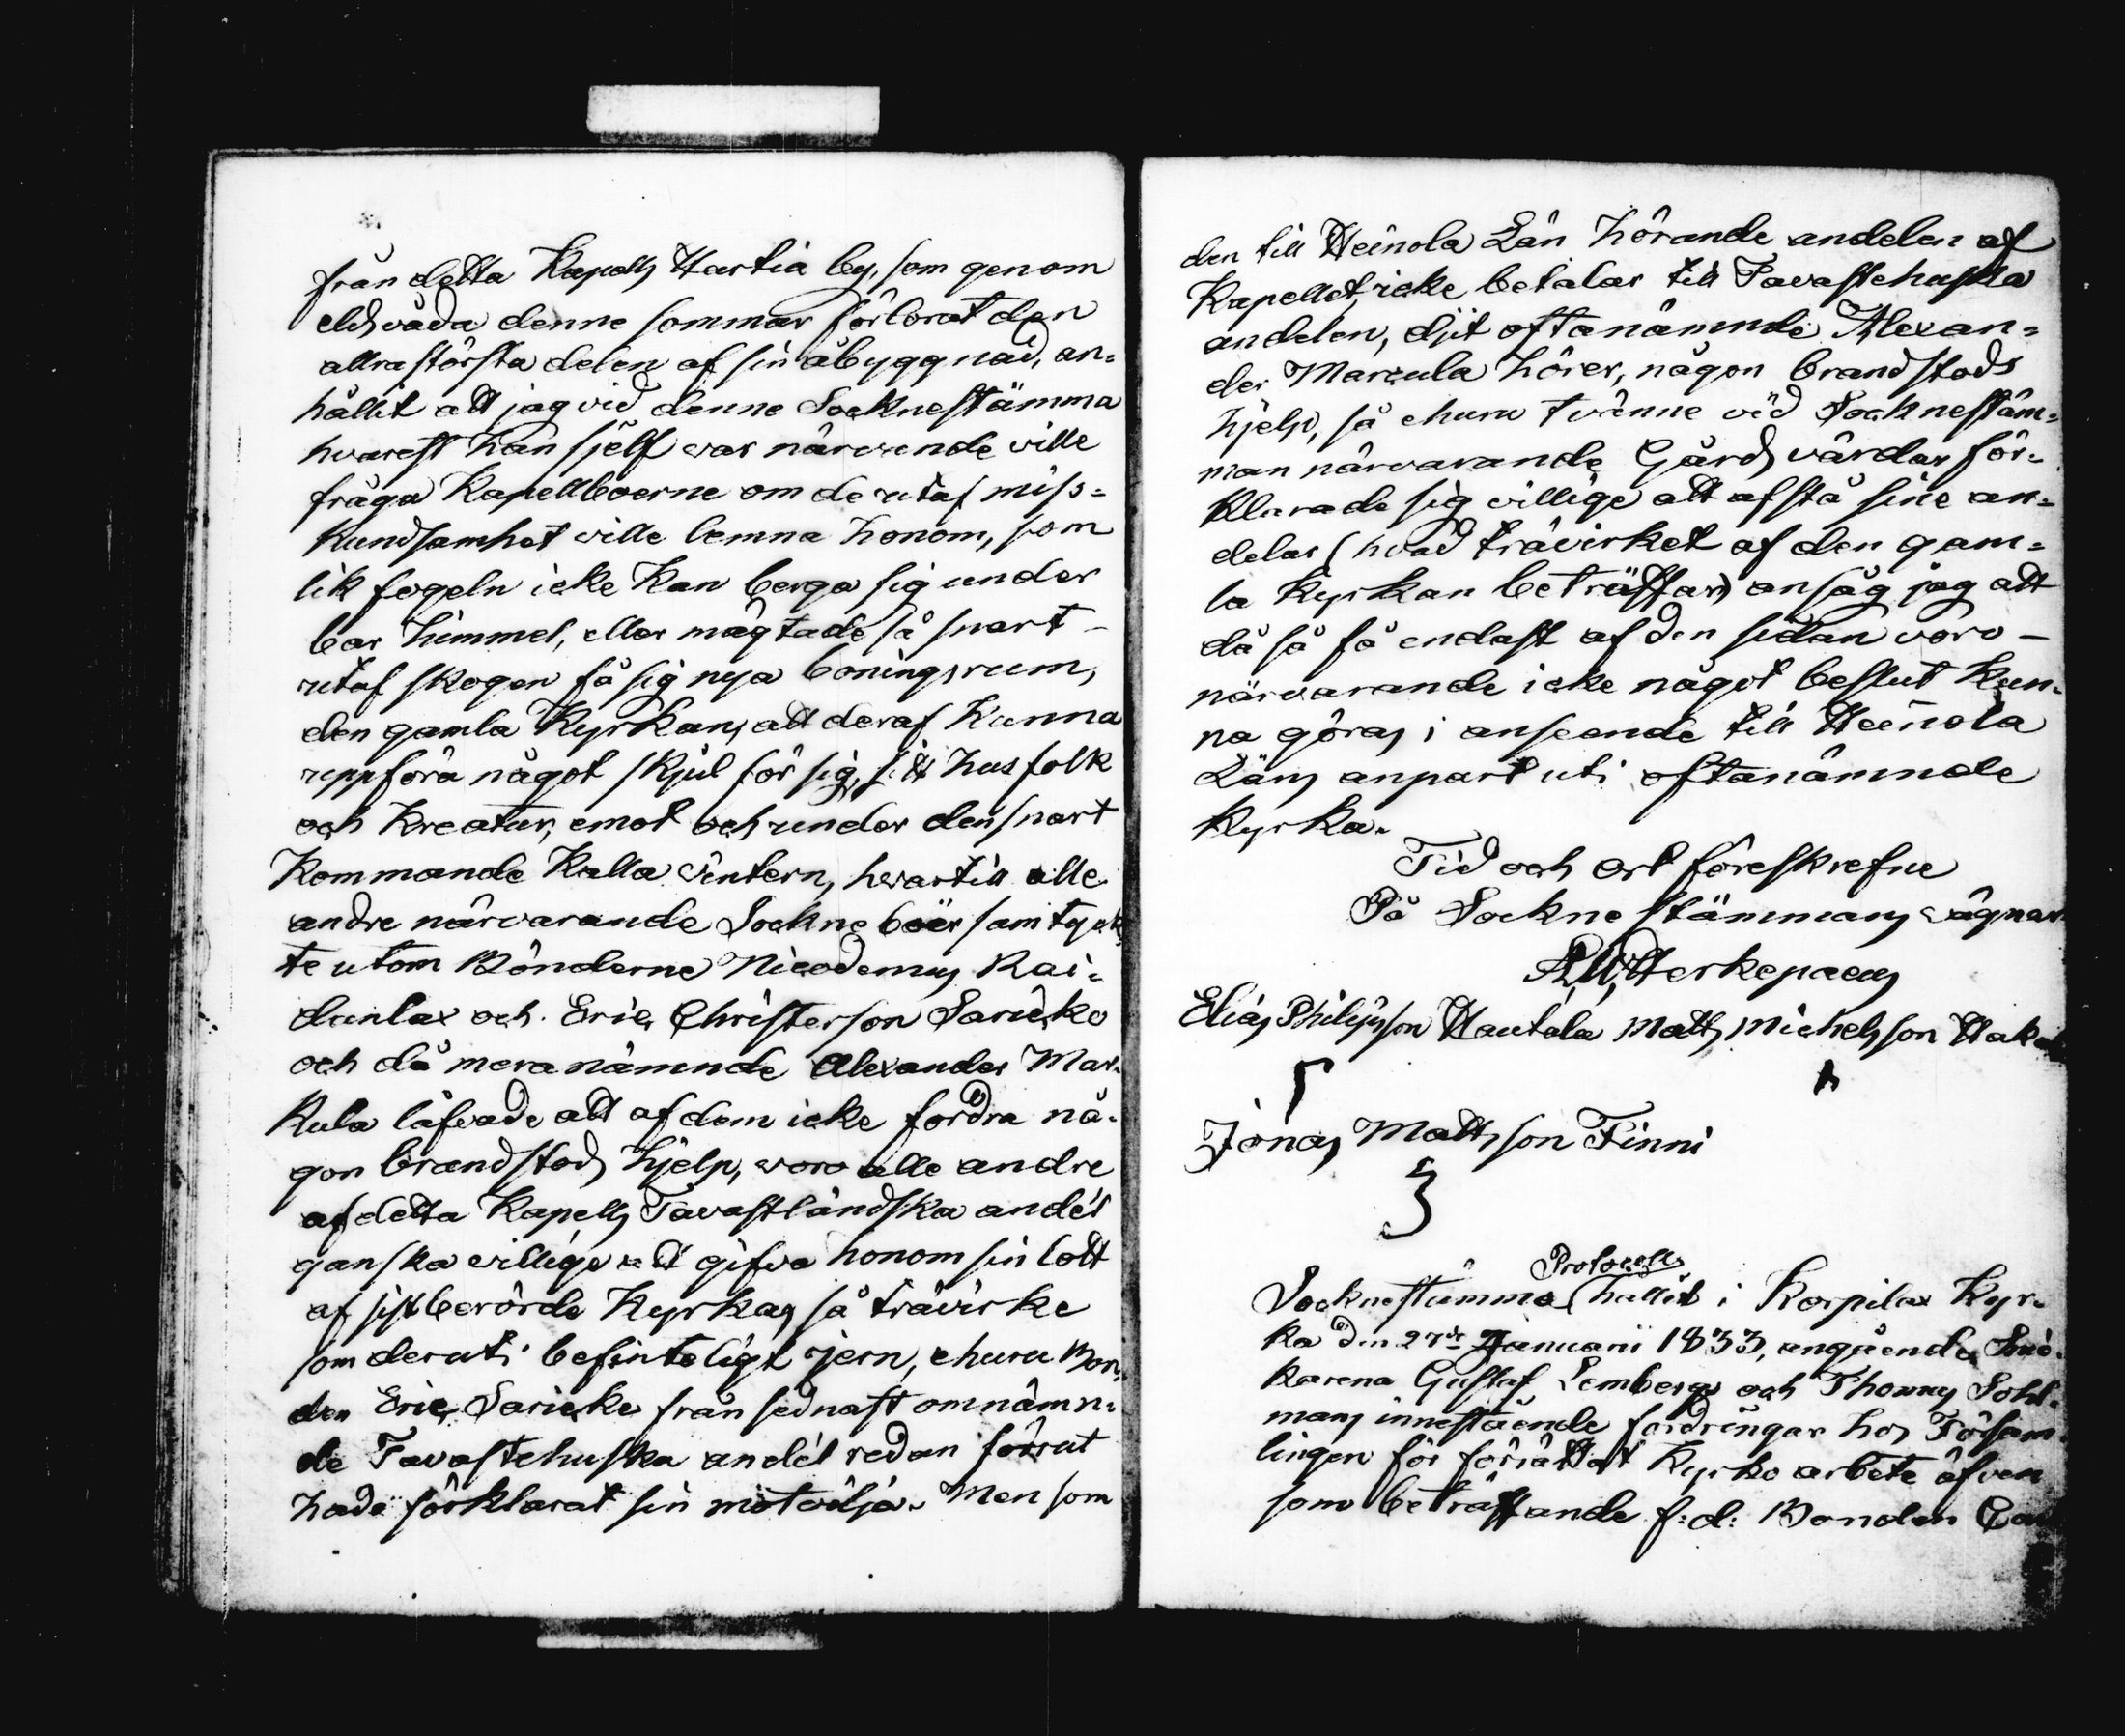 från detta Kapells Hartia by, som genom
eldsvåda denne sommar förlorat den
allrastörsta delen af sin åbyggnad, an=
hållit att jag vid denne Socknestämma
hvarest han sjelf var närvarande ville
fråga Kapellboerne om de utaf miss=
kundsamhet ville lemna honom, som
lik fogeln icke kan berga sig under
bar himmel, eller mägtade så snart
utaf skogen få sig nya boningsrum,
den gamla Kyrkan, att deraf kunna
uppföra något skjul för sig, sitt husfolk
och Kreatur, emot och under den snart
kommande kalla vintern, hvartill alle
andre närvarande Sockneboer samtyck=
te utom Bönderne Nicodemus Rai=
danlax och Eric Christersson Sarieko
och då mera nämnde Alexander Mar=
kula låfvade att af dem icke fordra nå=
gon brandstods hjelp, voro alle andre
af detta Kapells Tavastländska andel
ganska villige att gifva honom sin lott
af sistberörde Kyrkas så trävirke
som deruti befinteligt jern, ehuru Bon=
den Eric Sarieke från sednast omnämn=
de Tavastehuska andel redan förut
hade förklarat sin motvilja. Men som
den till Heinola Län hörande andelen af
Kapellet, icke betalar till Tavastehuska
andelen, djit oftanämnde Alexan=
der Marcula hörer, någon brandstods
hjelp, så ehuru tvänne vid Socknestäm=
man närvarande Gårdsvärdar för=
klarade sig villige att afstå sine an=
delar (hvad trävirket af den gam=
la Kyrkan beträffar) ansåg jag att
då så få endast af den sidan voro
närvarande icke något beslut kun=
na göras i anseende till Heinola
Läns anpart uti oftanämnde
Kyrka.
Tid och ort föreskrefne
På Socknestämmans vägnar
Herkepaeus
Elias Philipsson Hautala Matts Michelsson Hak
Jonas Mattsson Finni
Protocoll
Socknestämma hållit i Korpilax Kyr=
ka den 27de Januarii 1833, angående Snic=
karena Gustaf Lembergs och Thomas Sohl=
mans innestående fordringar hos Försam=
lingen för förrättat Kyrko arbete äfven
som beträffande f:d: Bonden